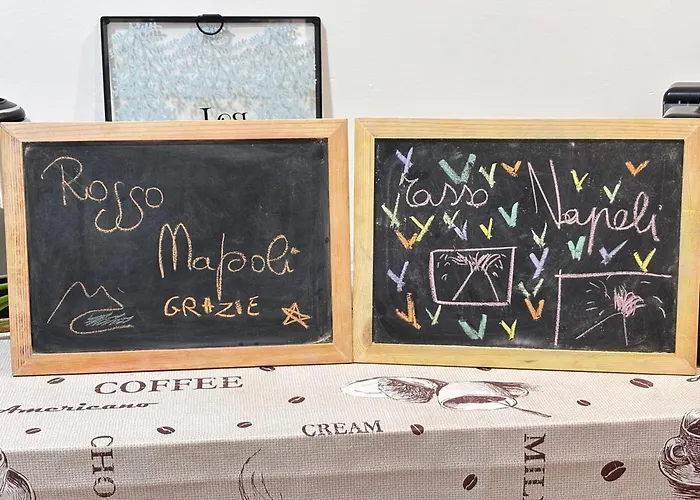 Rosso
Napoli
GRAZIE
rosso Napoli
COFFEE
Americano
CREAM
CHO
MIL